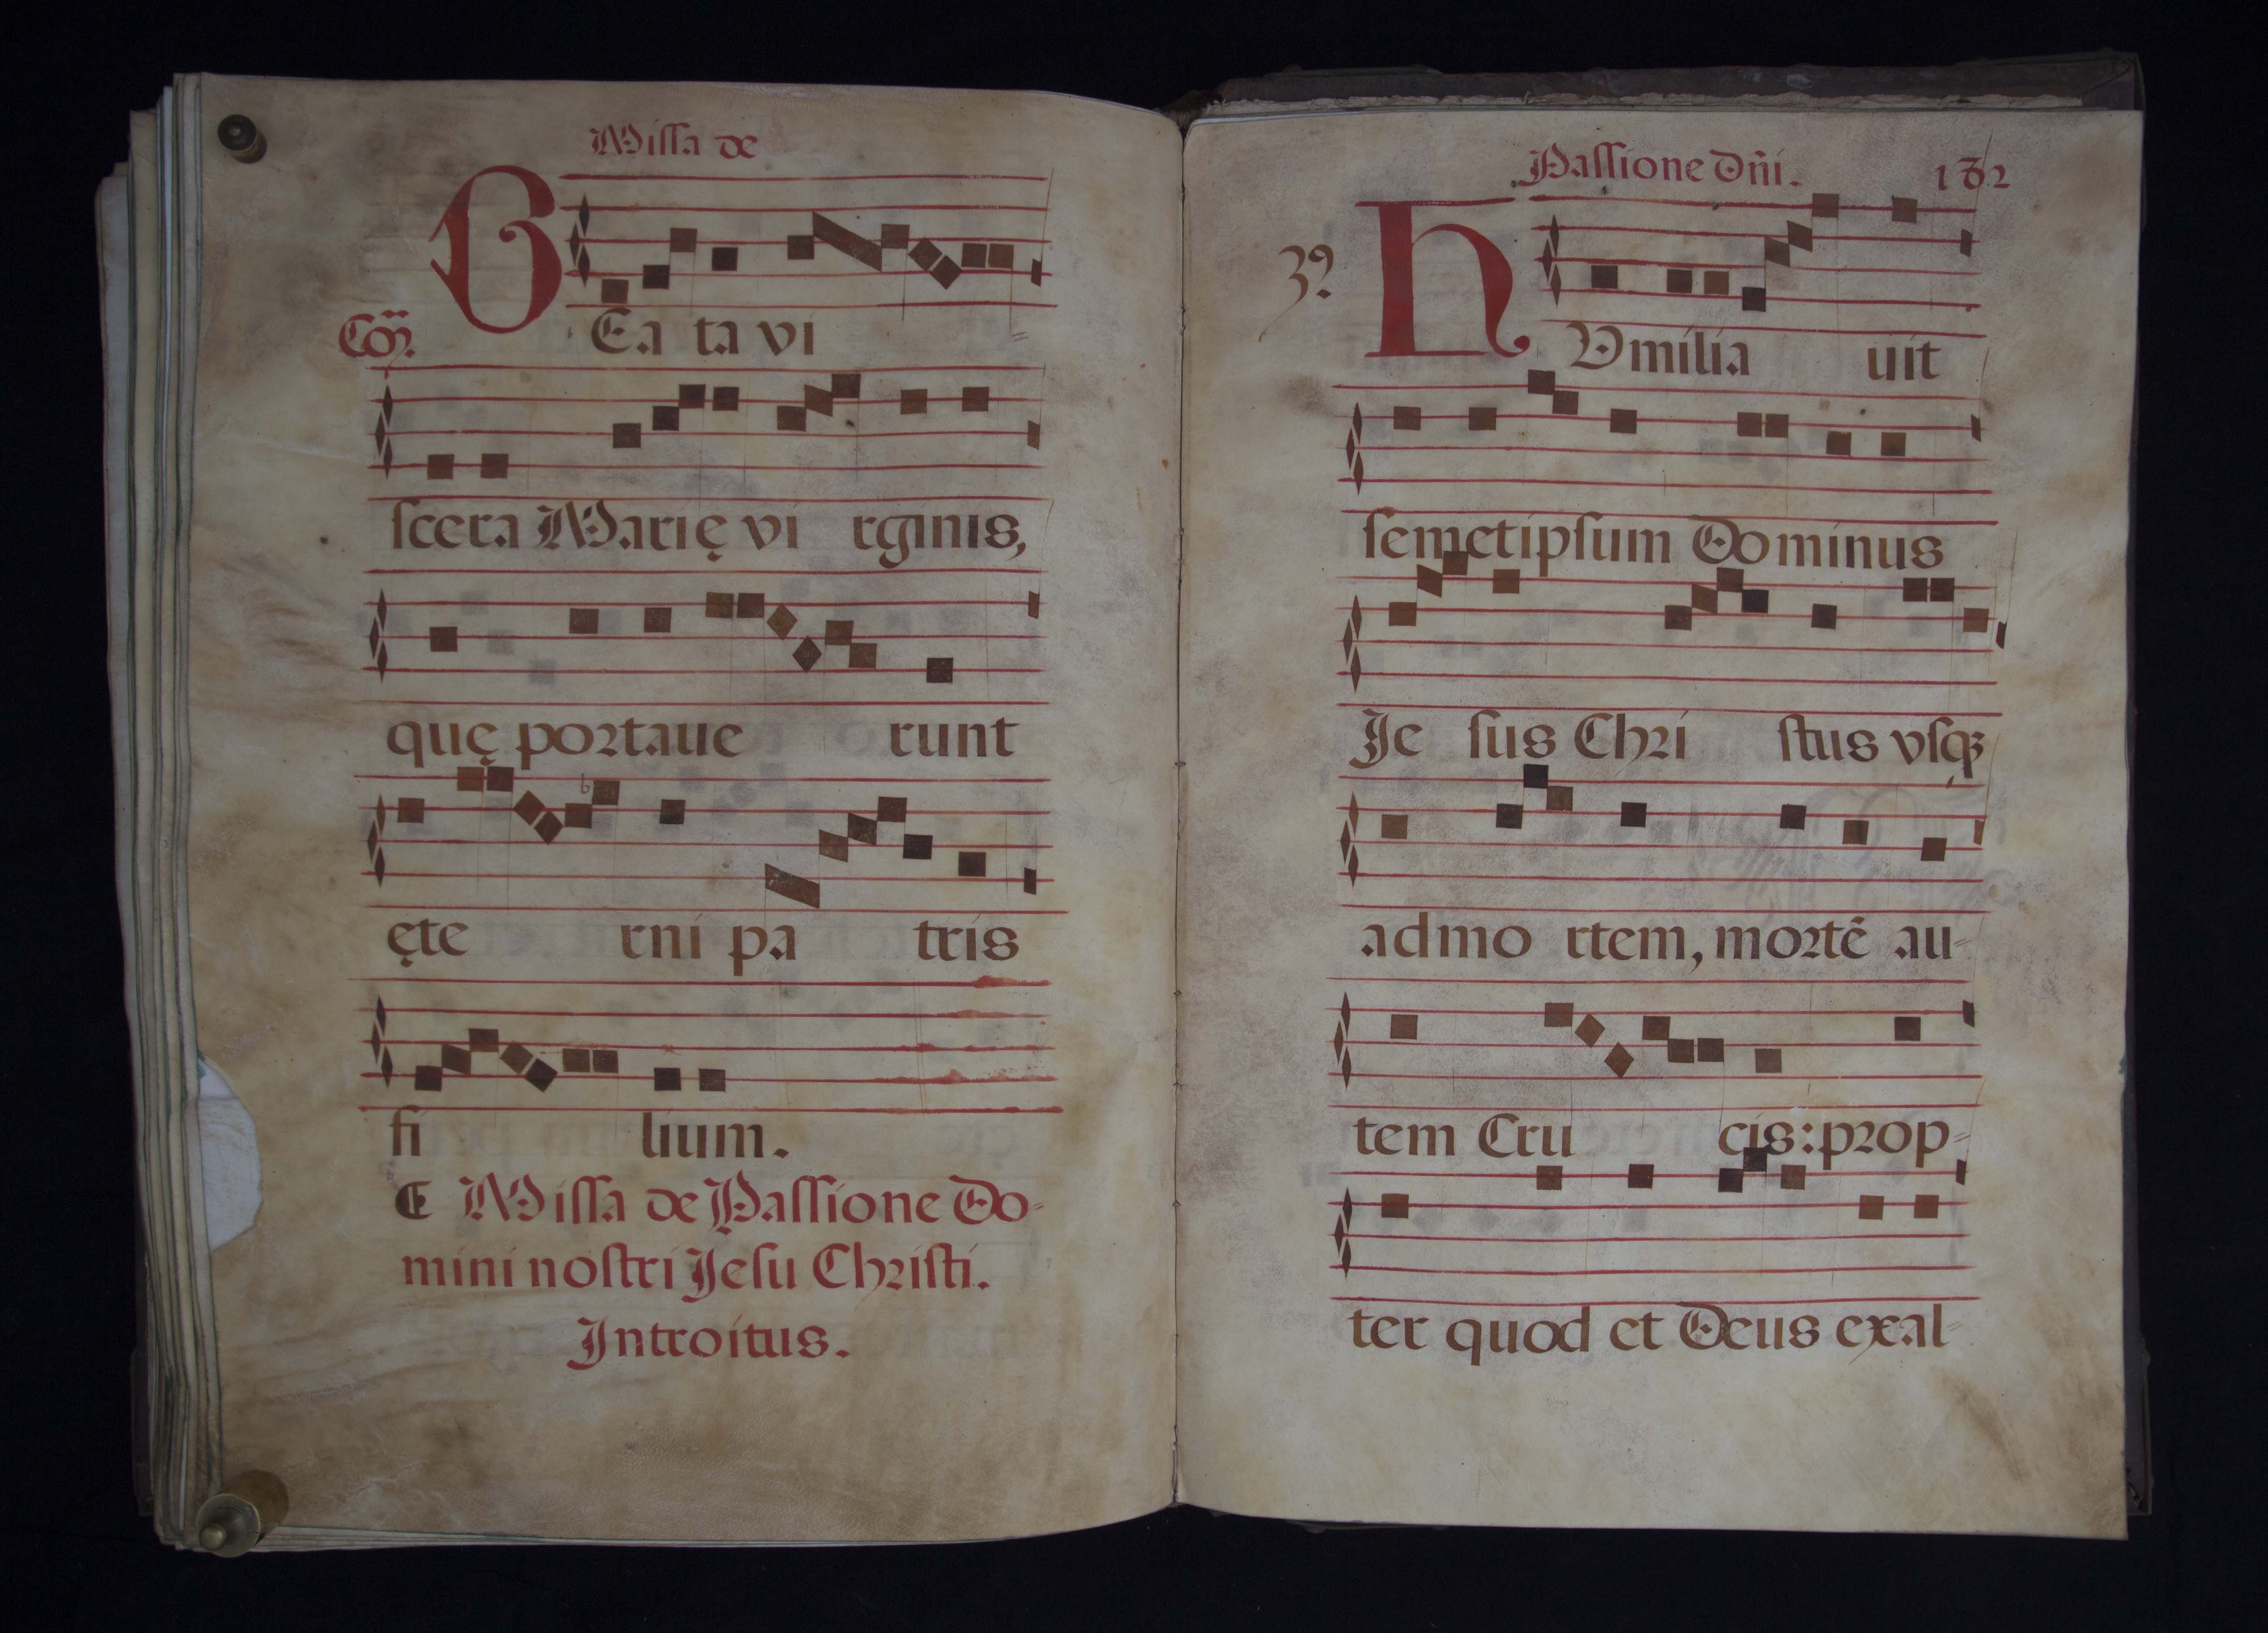 Missa de
BEata vi
Coȝ.
scera Marię vi rginis,
quę portaue runt
b
ęte rni pa tris
fi lium.
C Missa de Passione Do-
mini nostri Jesu Christi.
Introitus.
Passione Dñi. 132
3?
HVmilia uit
semetipsum Dominus
Je sus Chri stus vsqȝ
admo rtem, mortē au-
tem Cru cis: prop-
ter quod et Deus exal-